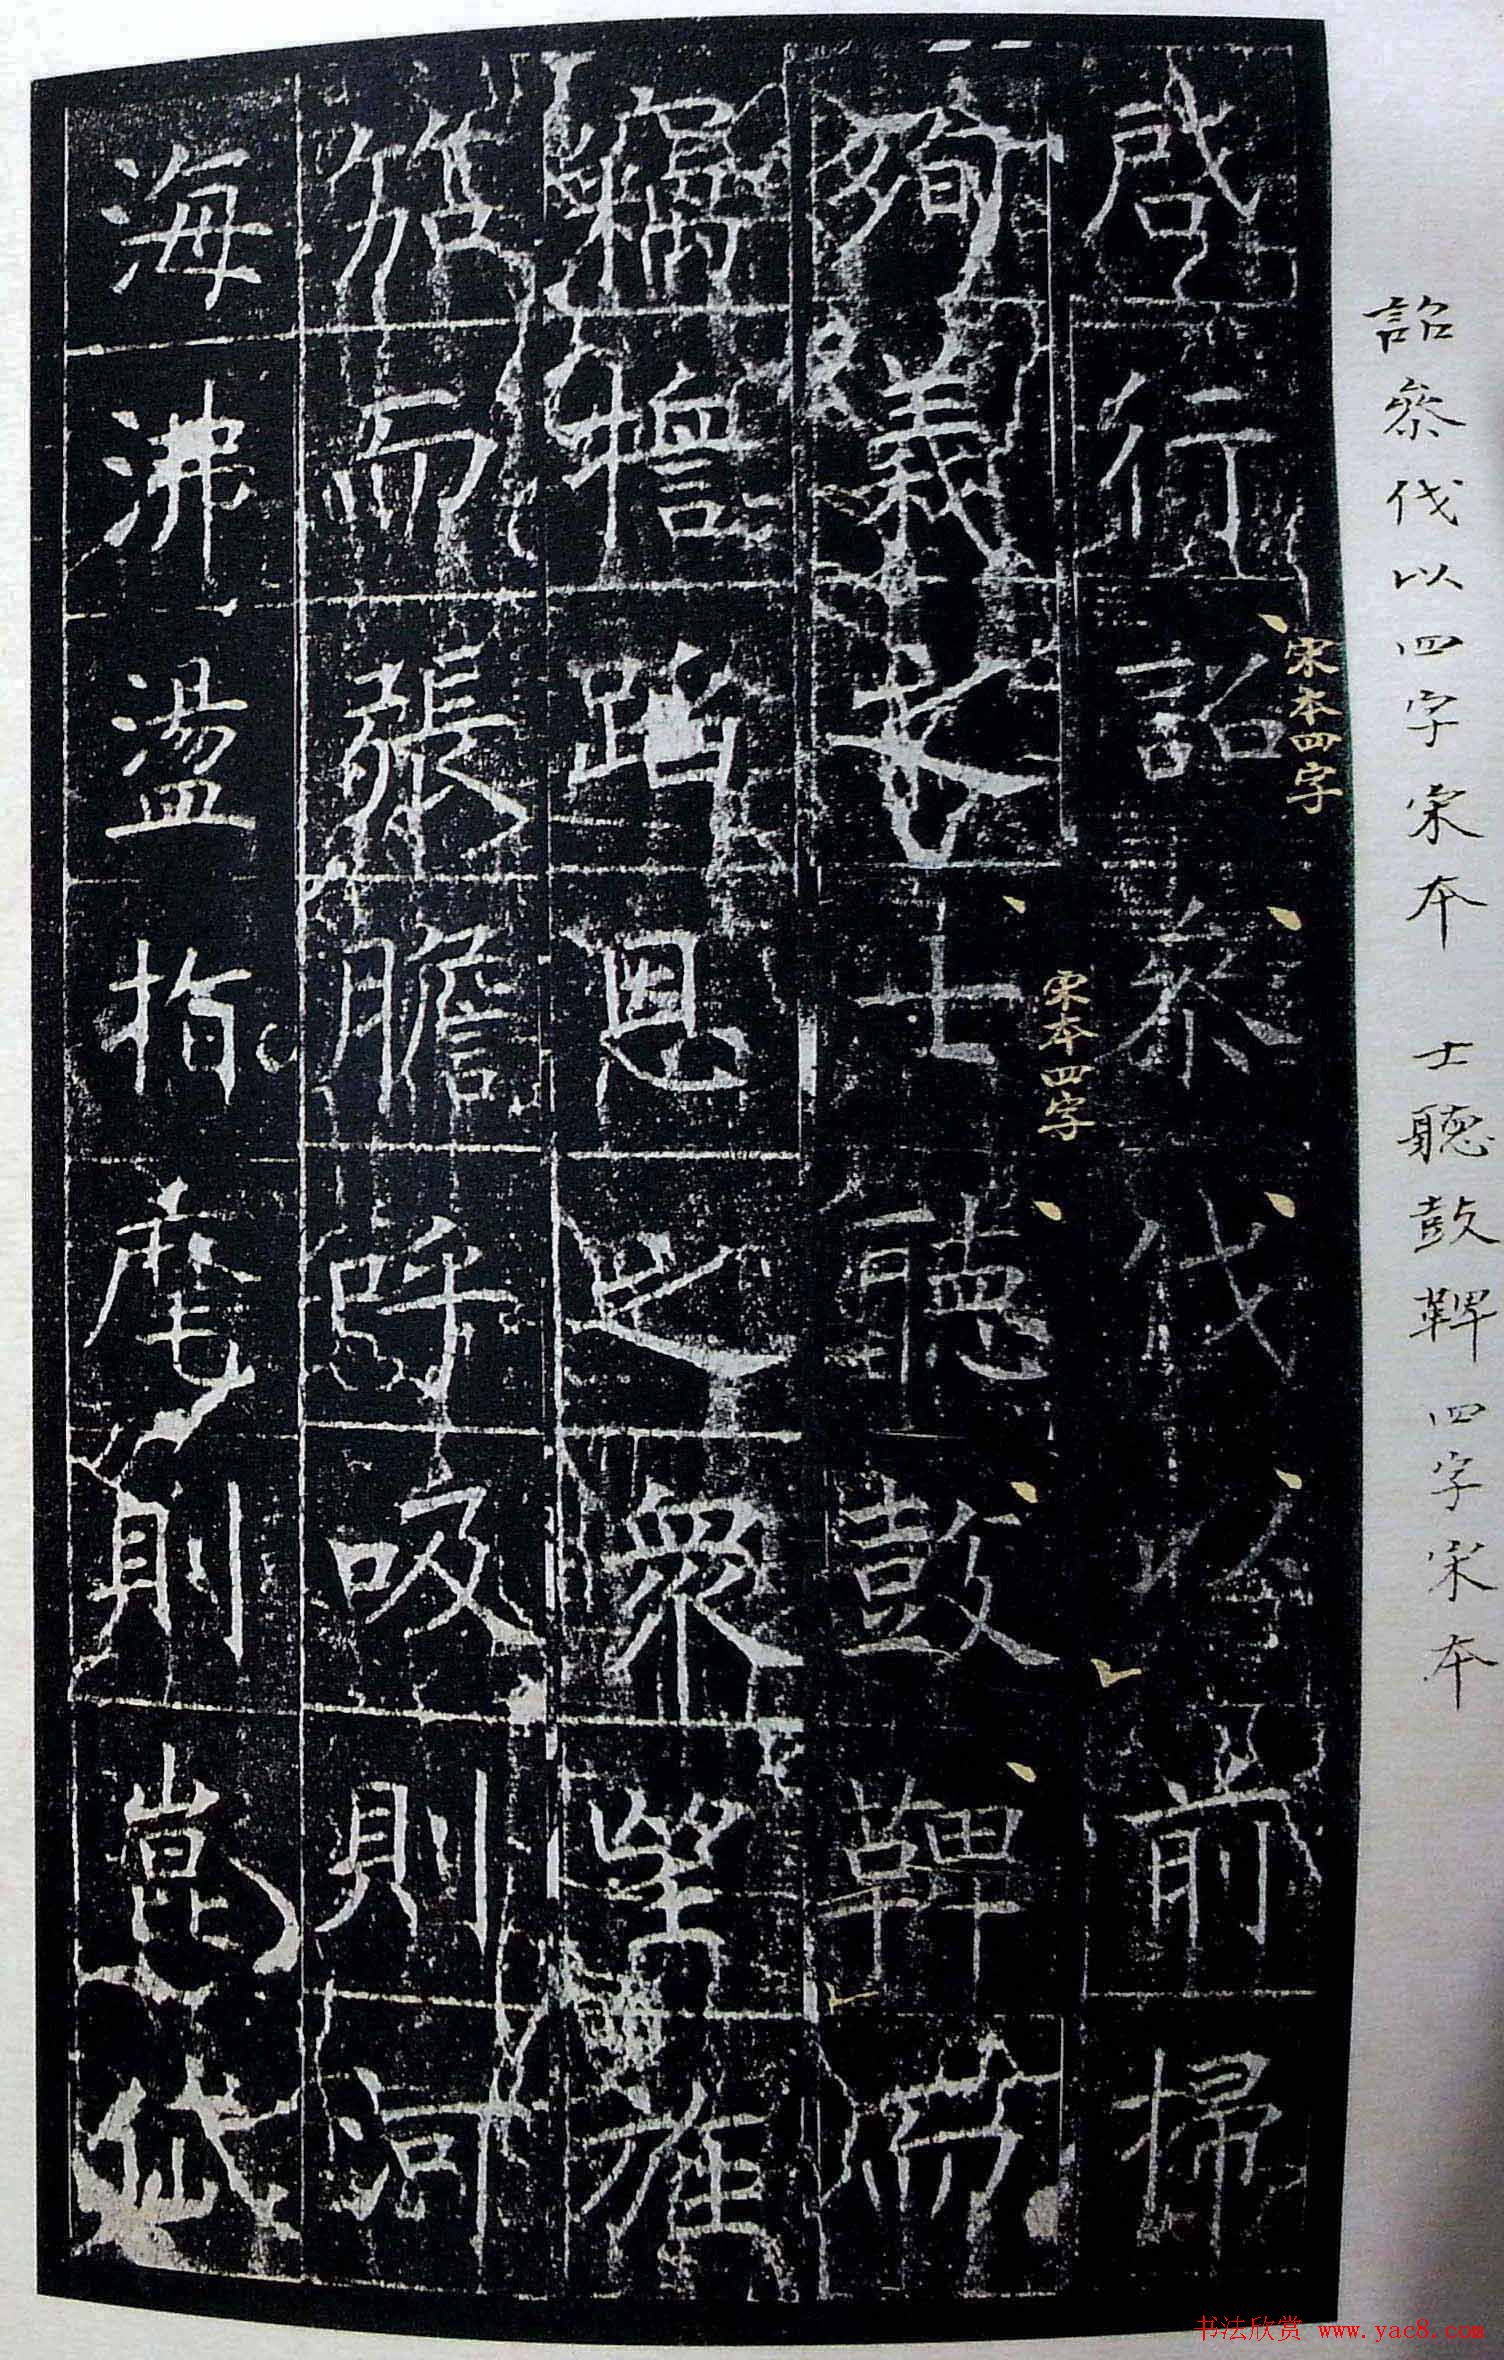 启行詔叅伐以前掃
殉義士聽鼓鞞而
竊蹈恩之衆望旌
而張膽呼吸則河
海沸盪指麾則崑岱
宋本四字
宋本四字
詔叅伐以四字宋本 士聽鼓鞞四字宋本
书法欣赏 www.yac8.com